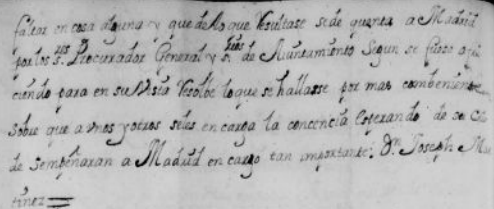 faltar en cosa alguna y que de lo que Resultase se de quenta a Madrid
por los s.res Procurador General y s.rios de Aiuntamiento Segun se fuese ofre
ciendo para en su Vista Resolbe lo que se hallasse por mas combeniente
Sobre que a unos y otros seles encarga la concencia Esperando de se Celo
desempeñaran a Madrid en cargo tan importante: Dn. Joseph Mar
tinez =